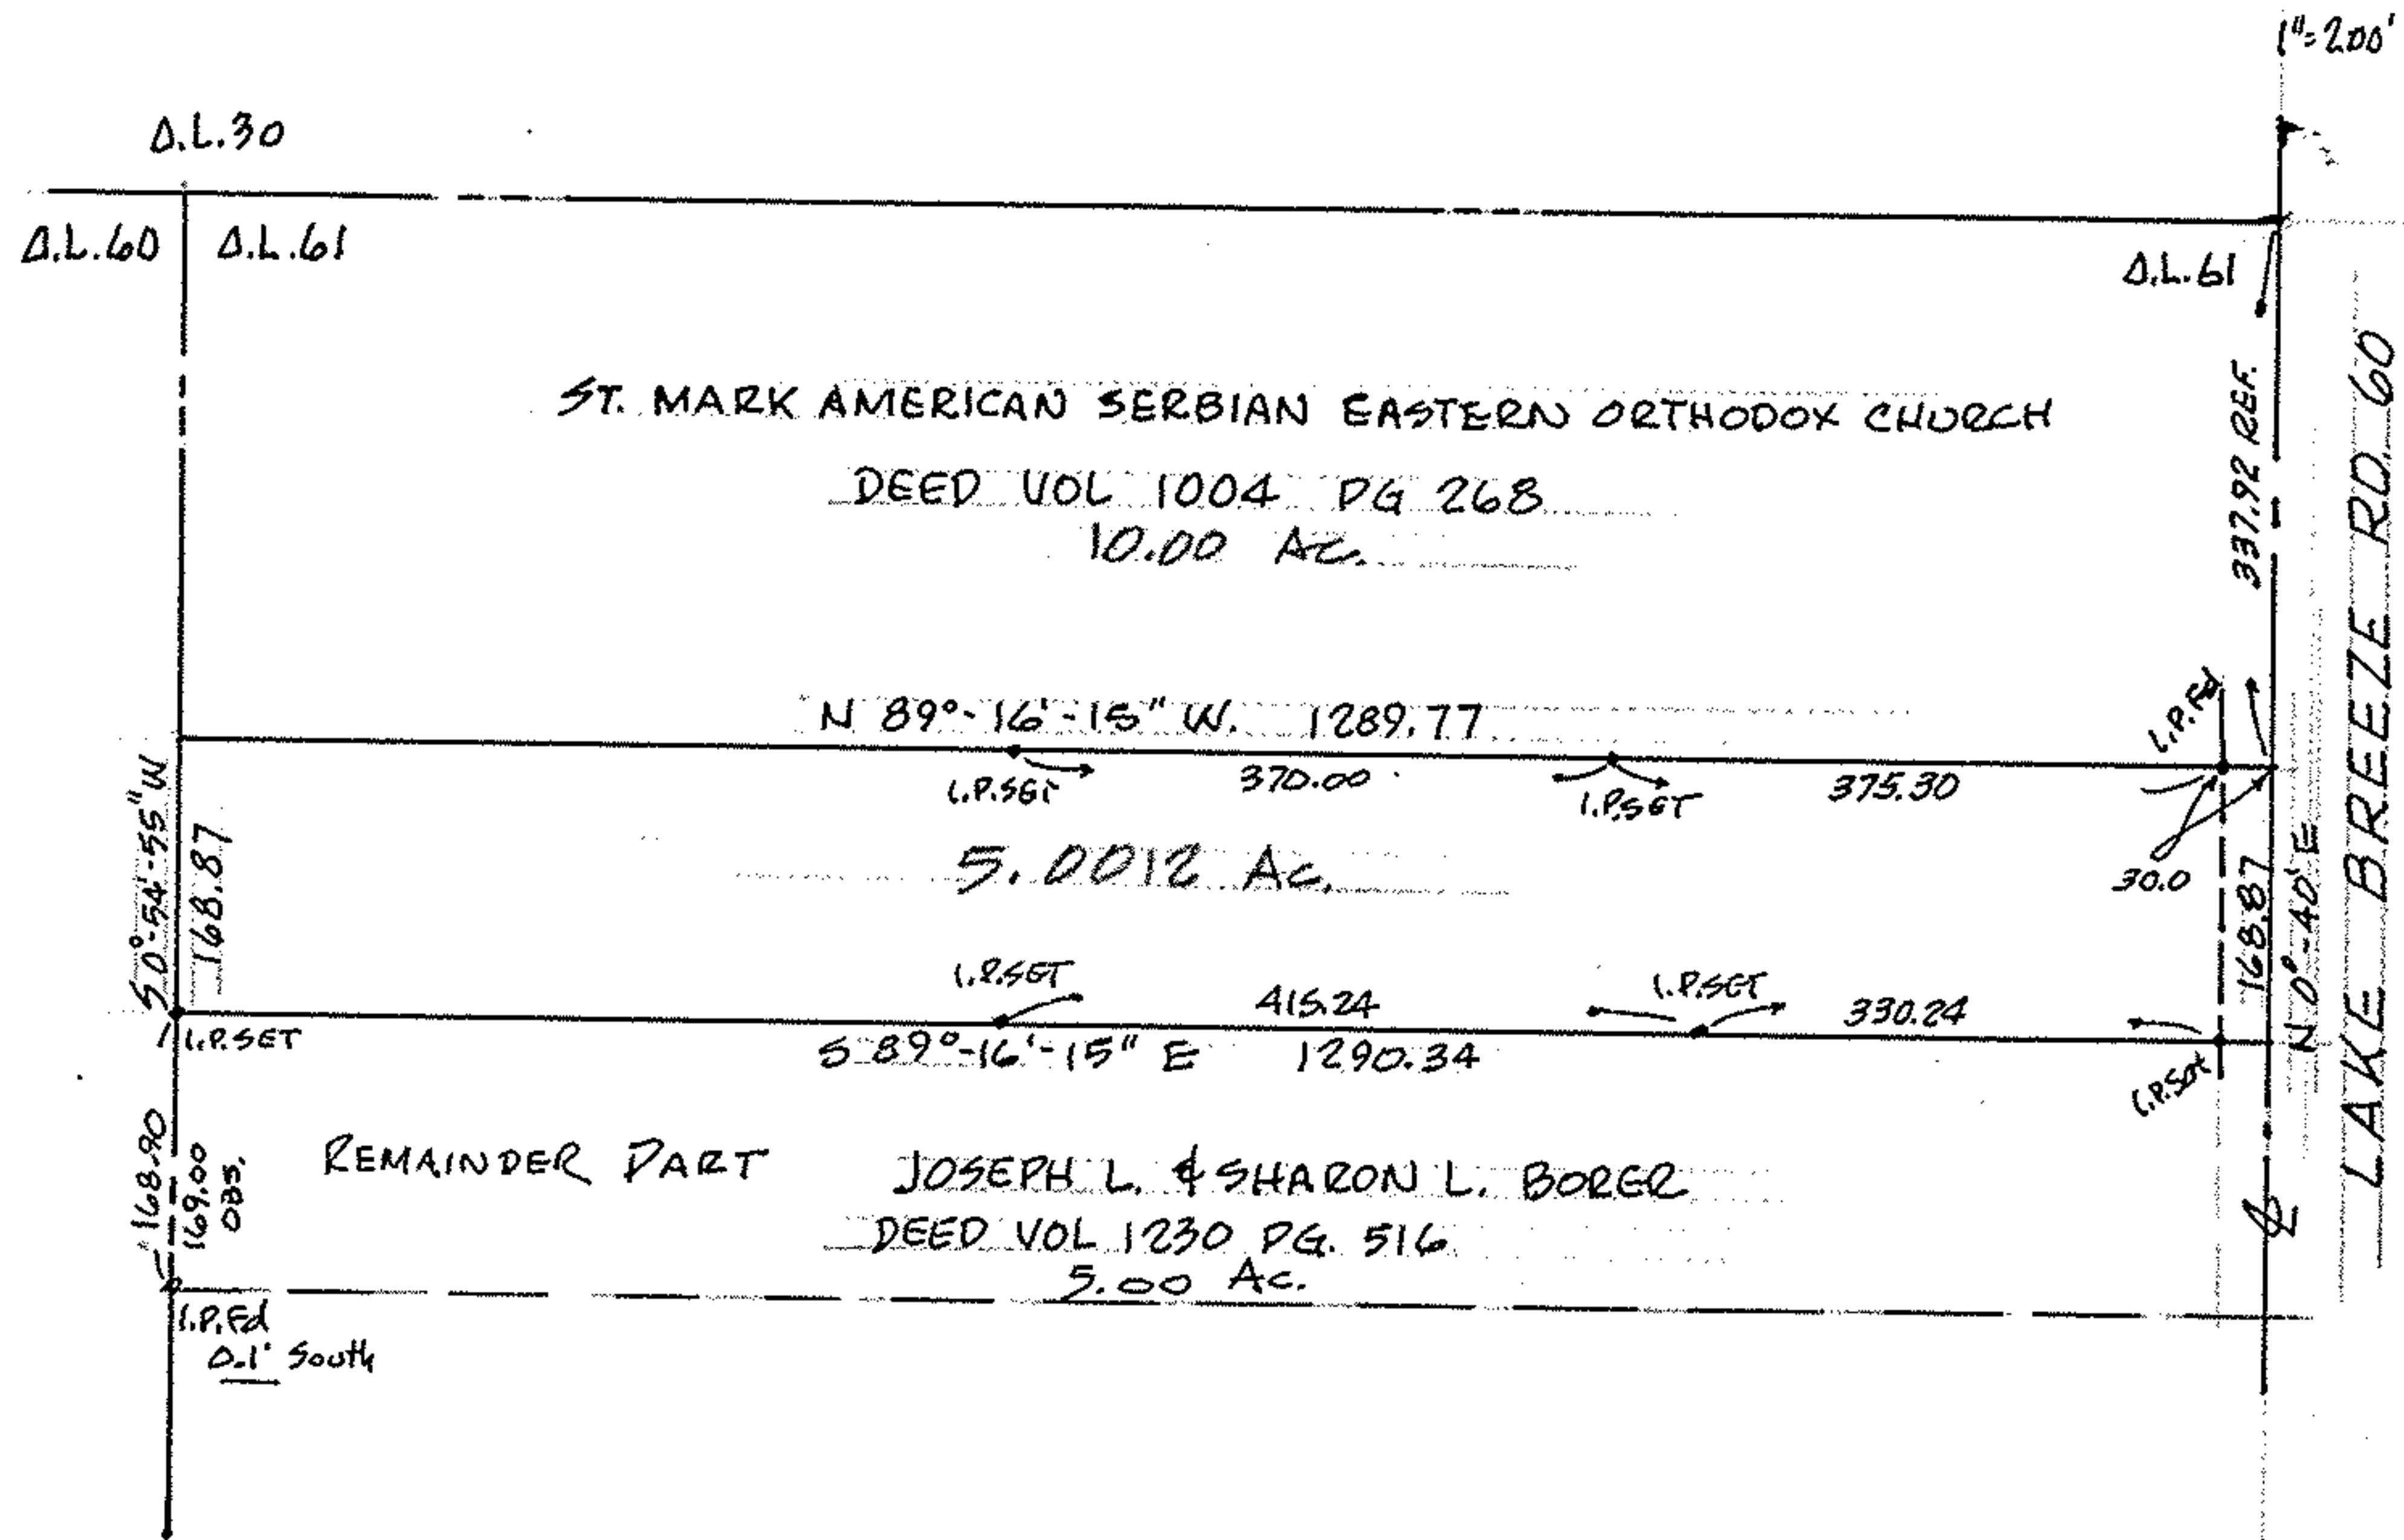 1"=200'
O.L.30
O.L.60
O.L.61
O.L.61
ST. MARK AMERICAN SERBIAN EASTERN ORTHODOX CHURCH
DEED VOL 1004 PG 268
10.00 Ac.
337.92 REF.
LAKE BREEZE RD. 60
N 89°-16'-15" W. 1289.77
I.P.Fd
I.P.SET
370.00
I.P.SET
375.30
30.0
S 0°-54'-55" W
168.87
5.0012 Ac.
168.87
N 0°-40' E
I.P.SET
415.24
I.P.SET
330.24
I.P.SET
S 89°-16'-15" E 1290.34
I.P.Set
168.90
169.00
OBS.
REMAINDER PART JOSEPH L. & SHARON L. BORER
DEED VOL 1230 PG. 516
5.00 Ac.
I.P.Fd
0.1' South